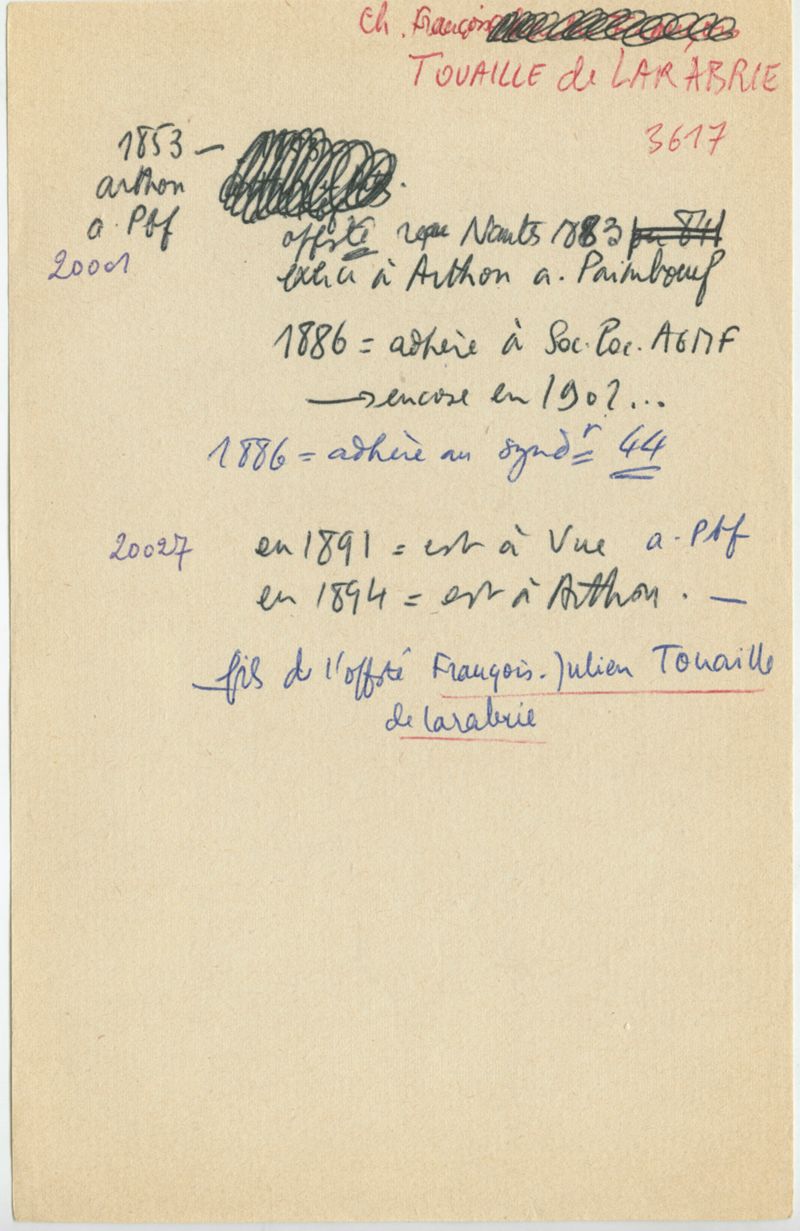 Ch. François
TOUAILLE de LARABRIE
3617
1853 –
arthon
a. Pbf
20001
offsté reçu Nantes 1883
exerce à Arthon a. Paimboeuf
1886 = adhère à Soc. Loc. AGMF
→ encore en 1902...
1886 = adhère au synd r 44
20027 en 1891 = est à Vue a. Pbf
en 1894 = est à Arthon. –
– fils de l'offsté François-Julien Touaille
de Larabrie